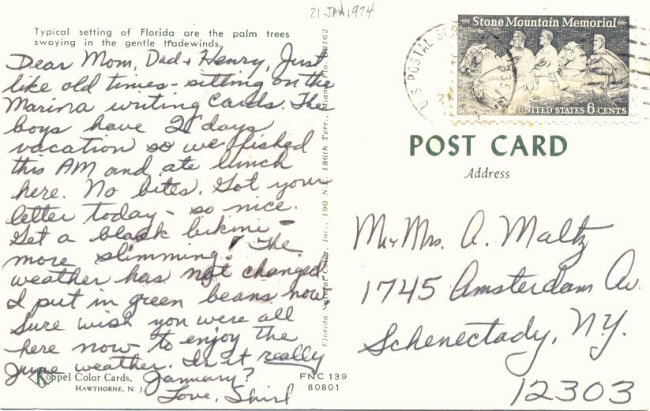 21 JAN 1974
Typical setting of Florida are the palm trees
swaying in the gentle tradewinds.
Dear Mom, Dad & Henry, Just
like old times - sitting on the
Marina writing cards. The
boys have 2 days
vacation so we fished
this AM and ate lunch
here. No bites. Got your
letter today - so nice.
Get a black bikini -
more slimming! The
weather has not changed
I put in green beans now.
Sure wish you were all
here now to enjoy the
June weather. Is it really
January?
Love, Shirl
Koppel Color Cards,
HAWTHORNE, N. J.
FNC 139
80801
Florida Natural Color, Inc., 190 N.E. 186th Terr.,
U.S. POSTAL
Stone Mountain Memorial
UNITED STATES 6 CENTS
POST CARD
Address
Mr & Mrs. A. Maltz
1745 Amsterdam Av.
Schenectady, N.Y.
12303